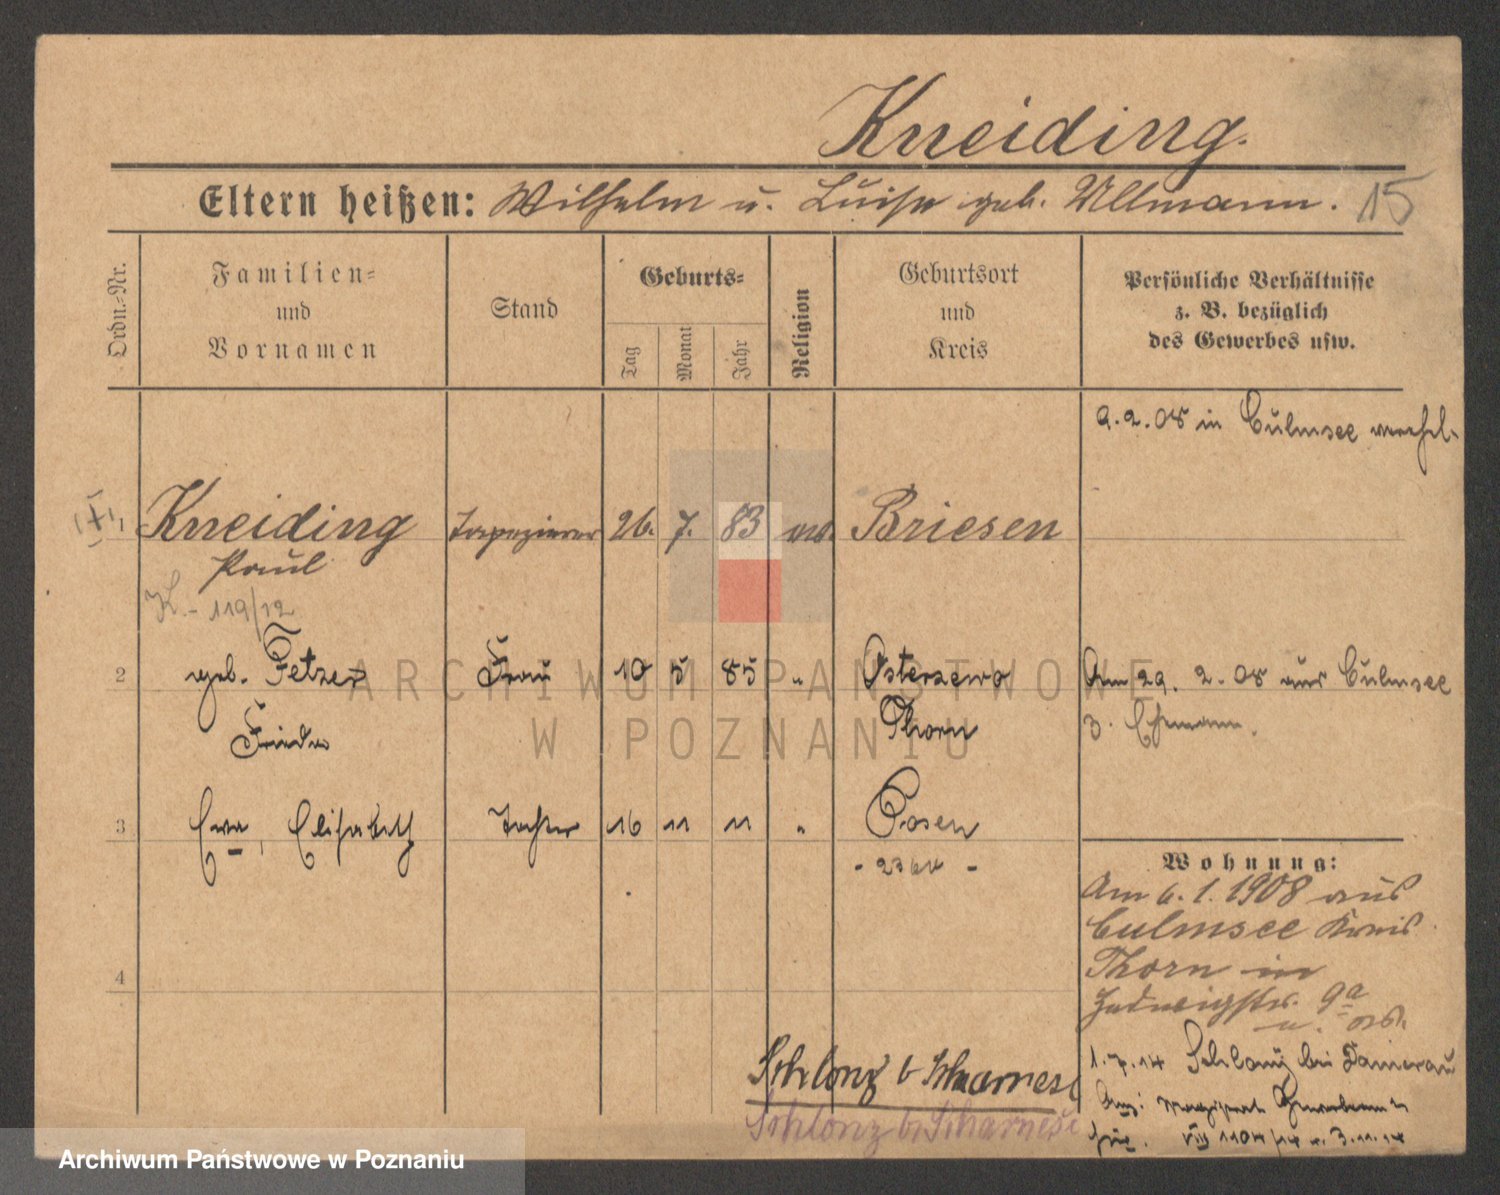 Kneiding.
Eltern heißen: Wilhelm u. Luise geb. Ullmann. 15
Ordn.-Nr.
Familien- und Vornamen
Stand
Geburts-
Tag
Monat
Jahr
Religion
Geburtsort und Kreis
Persönliche Verhältnisse
z. B. bezüglich
des Gewerbes usw.
9.2.08 in Culmsee verehel.
1 Kneiding Tapezierer 26. 7. 83 Briesen
Paul
119/12
2 geb. Fetzer Frau 10 5 85 " Osterzewo Am 29. 2. 08 aus Culmsee
Frieda Thorn z. Ehemann.
3 Ewa, Elisabeth Tochter 16 11 11 " Posen
Wohnung:
Am 6. 1. 1908 aus
Culmsee Kreis
Thorn in
Hedwigstr. 9a
4
1.7.14 bei Damerau
Schlonz b Scharnese
Schlonz b. Scharnese
1104/14 v. 3.11.14
ARCHIWUM PAŃSTWOWE
W POZNANIU
Archiwum Państwowe w Poznaniu